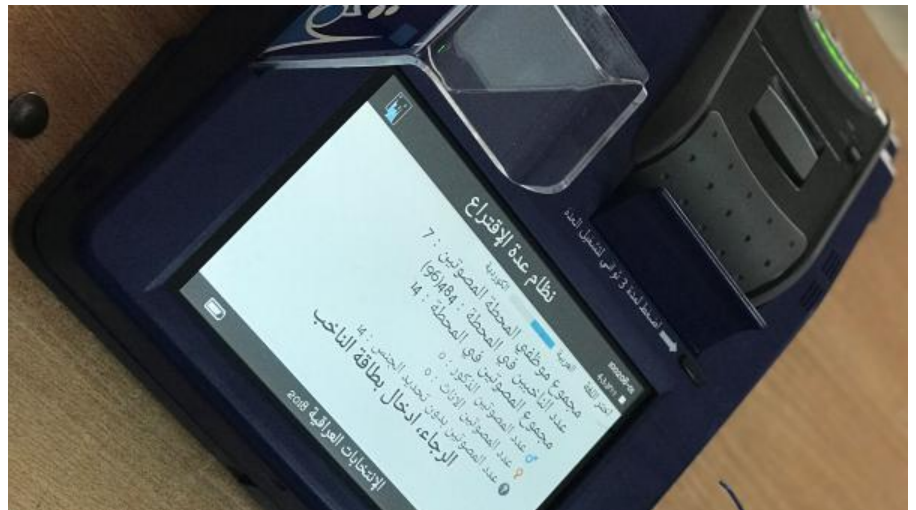 اضغط لمدة 3 ثواني لتشغيل العدة
نظام عدة الإقتراع
اختر اللغة
العربية
الكوردية
مجموع موظفي المحطة المصوتين : 7
عدد الناخبين في المحطة : 484(96)
مجموع المصوتين في المحطة : 14
عدد المصوتين الذكور : 0
عدد المصوتين الاناث : 0
عدد المصوتين بدون تحديد الجنس : 14
الرجاء، ادخال بطاقة الناخب
الإنتخابات العراقية 2018